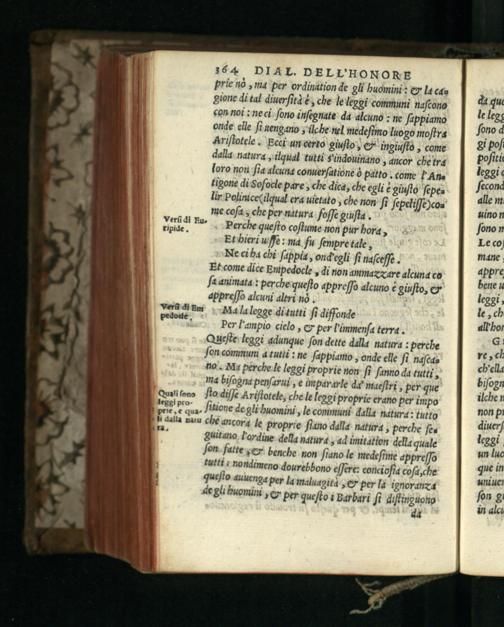 364 DIAL. DELL'HONORE
prie nò, ma per ordination de gli huomini: & la ca-
gione di tal diuersità è, che le leggi communi nascono
con noi: ne ci sono insegnate da alcuno: ne sappiamo
onde elle si uengano, ilche nel medesimo luogo mostra
Aristotele. Ecci un certo giusto, & ingiusto, come
dalla natura, ilqual tutti s'indouinano, ancor che tra
loro non sia alcuna conuersatione ò patto. come l'An-
tigone di Sofocle pare, che dica, che egli è giusto sepe-
lir Polinice (ilqual era uietato, che non si sepelisse) co-
me cosa, che per natura fosse giusta.
Versi di Eu-
ripide.
Perche questo costume non pur hora,
Et hieri usse: ma fu sempre tale,
Ne ci ha chi sappia, ond'egli si nascesse.
Et come dice Empedocle, di non ammazzare alcuna co
sa animata: perche questo appresso alcuno è giusto, &
appresso alcuni altri nò.
Versi di Em
pedocle.
Ma la legge di tutti si diffonde
Per l'ampio cielo, & per l'immensa terra.
Queste leggi adunque son dette dalla natura: perche
son communi a tutti: ne sappiamo, onde elle si nasca-
no. Ma perche le leggi proprie non si sanno da tutti,
ma bisogna pensarui, e impararle da' maestri, per que
sto disse Aristotele, che le leggi proprie erano per impo
sitione de gli huomini, le communi dalla natura: tutto
che ancora le proprie siano dalla natura, perche se-
guitano l'ordine della natura, ad imitation della quale
son fatte, & benche non siano le medesime appresso
tutti: nondimeno dourebbono essere: conciosia cosa, che
questo auuenga per la maluagità, & per la ignoranza
de gli huomini, & per questo i Barbari si distinguono
da
Quali sono
leggi pro-
prie, e qua-
li dalla natu
ra.